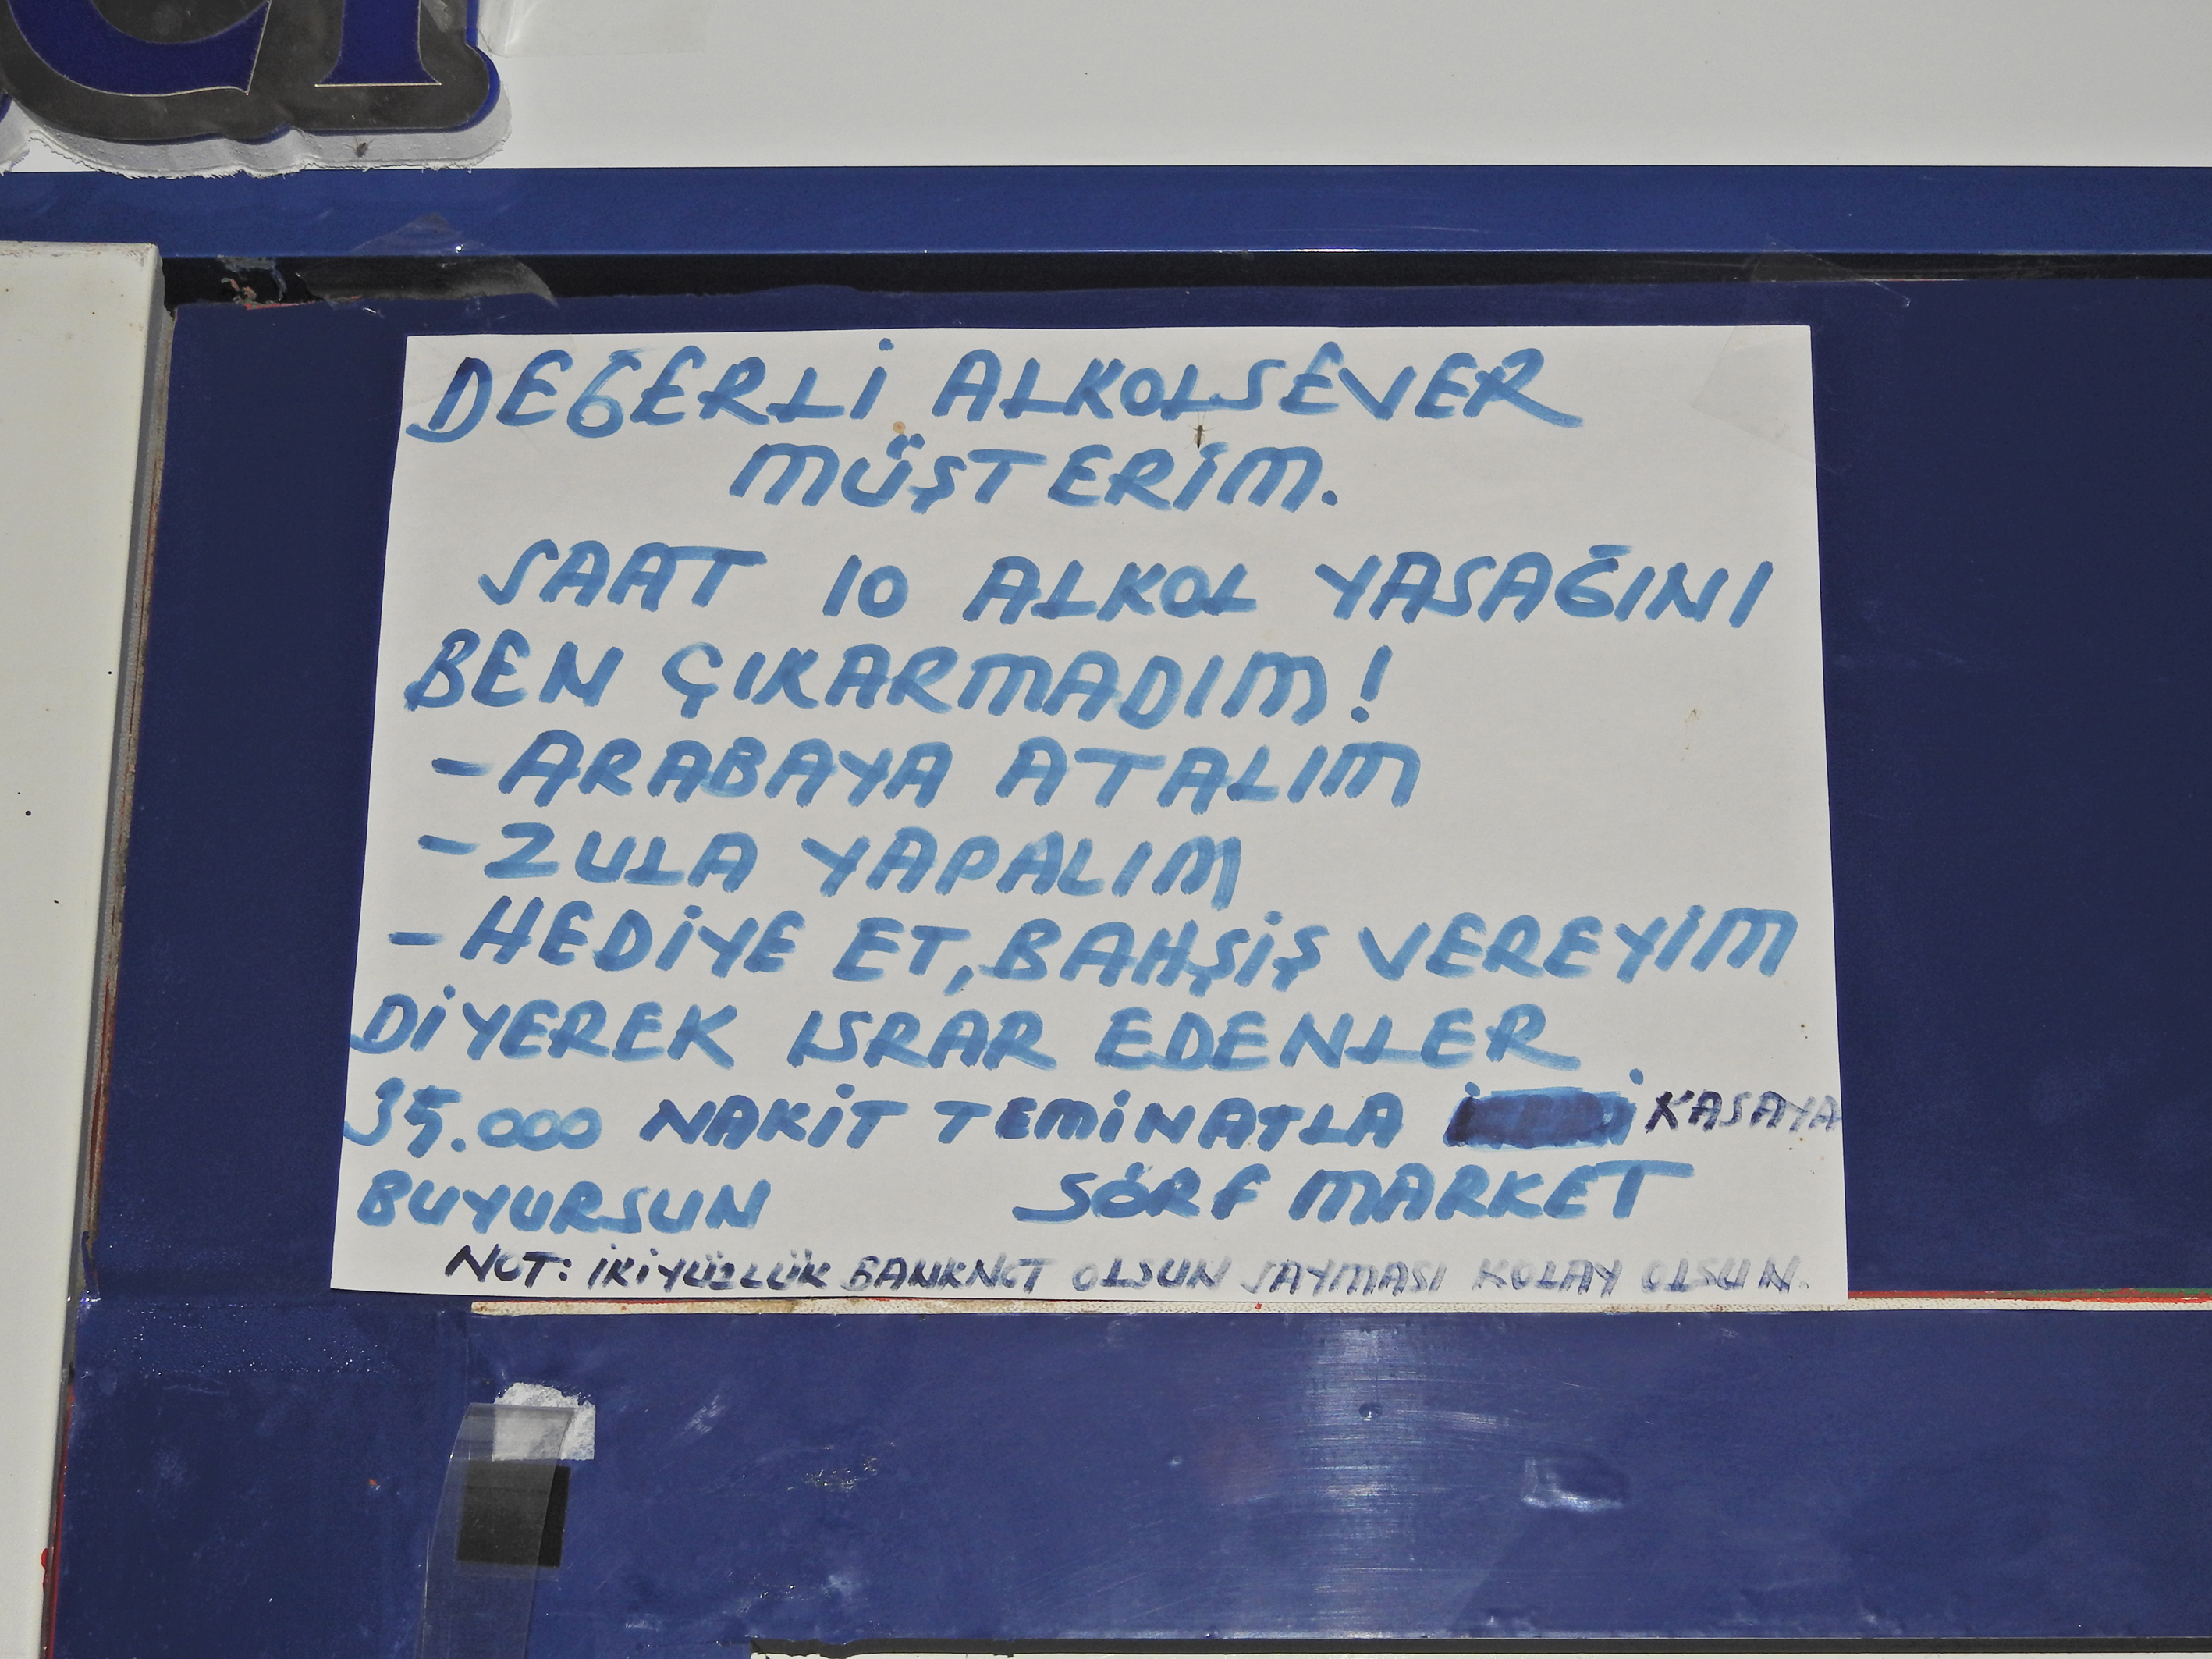 DEĞERLİ ALKOLSEVER
MÜŞTERİM.
SAAT 10 ALKOL YASAĞINI
BEN ÇIKARMADIM!
- ARABAYA ATALIM
- ZULA YAPALIM
- HEDİYE ET, BAHŞİŞ VEREYİM
DİYEREK ISRAR EDENLER
35.000 NAKİT TEMİNATLA KASAYA
BUYURSUN SÖRF MARKET
NOT: İKİYÜZLÜK BANKNOT OLSUN SAYMASI KOLAY OLSUN.